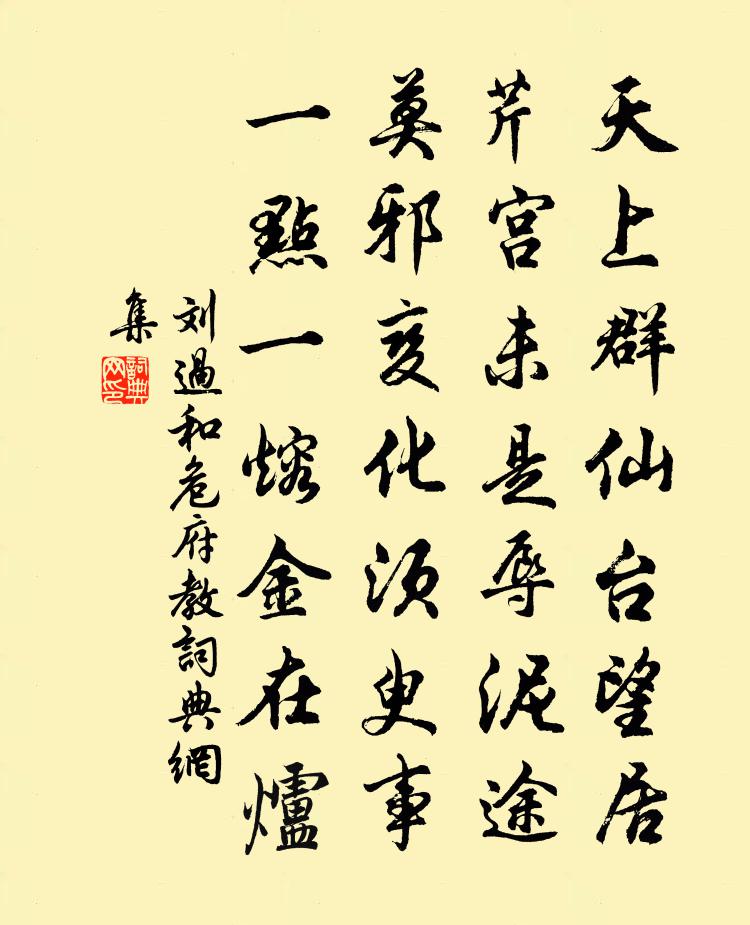 天上群仙台望居
芹宫未是辱泥途
莫邪变化须臾事
一點一熔金在爐
刘過和危府教詞典網
集
詞典
网印